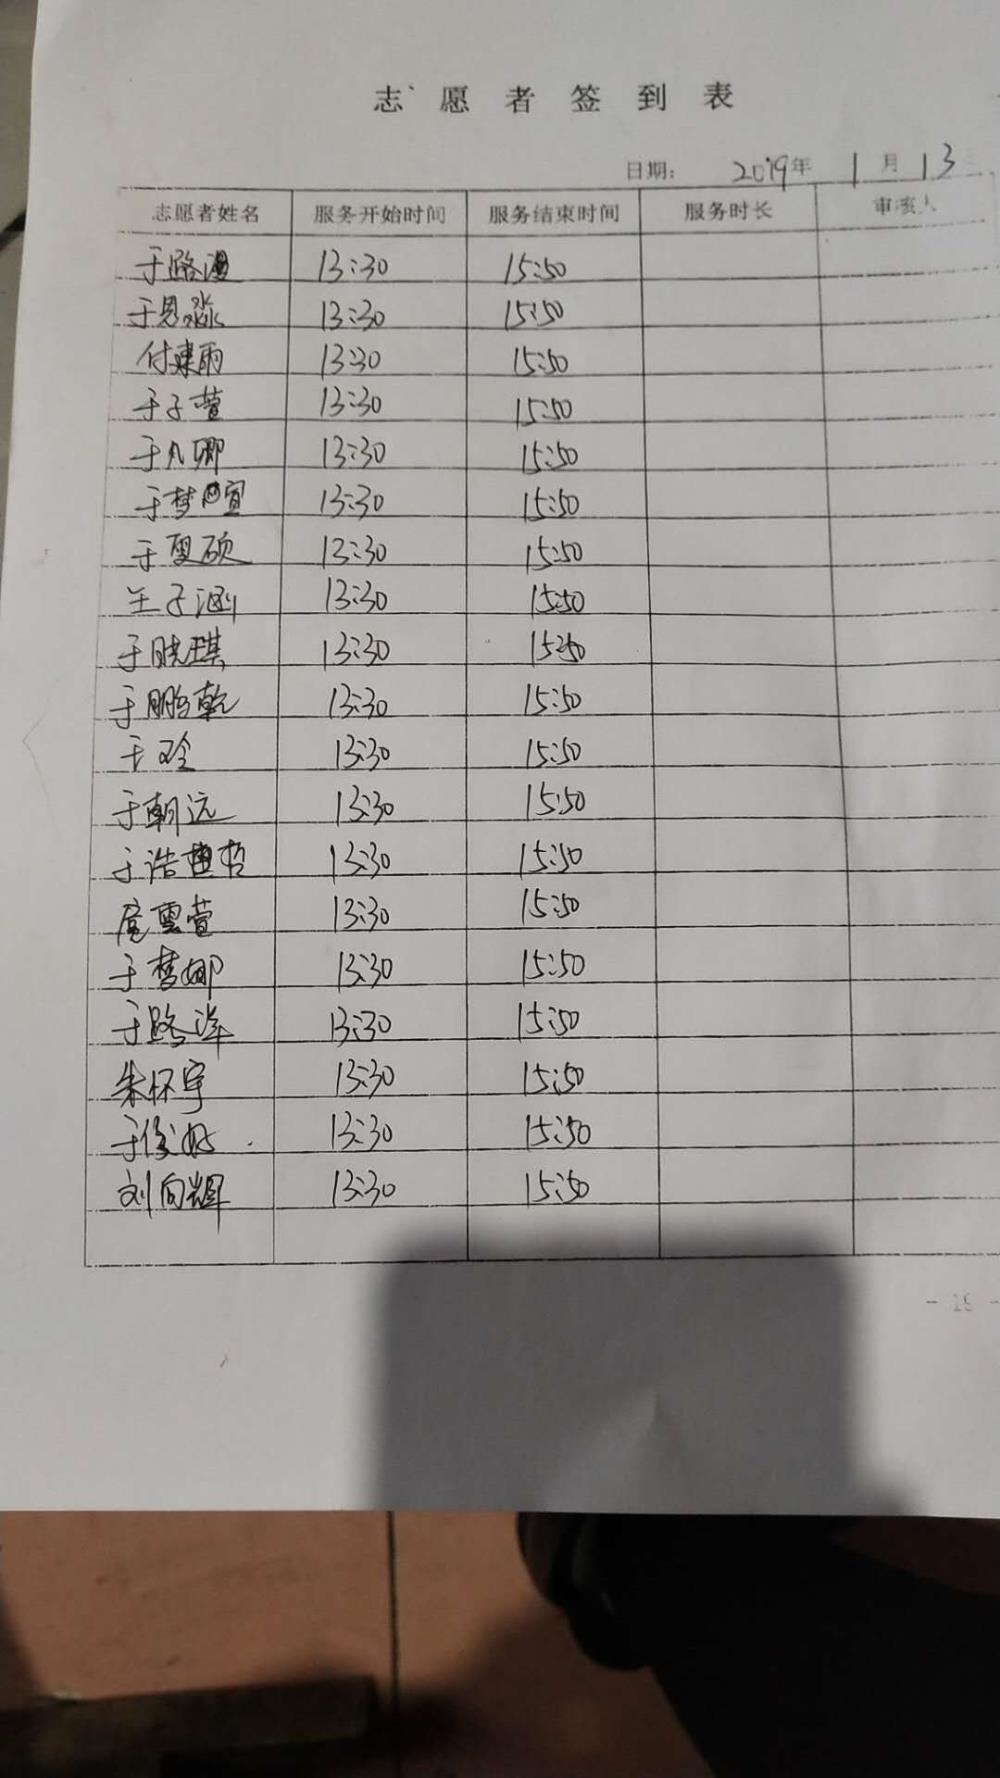 志愿者签到表
日期: 2019年 1月 13
志愿者姓名 服务开始时间 服务结束时间 服务时长 审核人
于路漫 13:30 15:50
于思淼 13:30 15:50
付建雨 13:30 15:50
于子萱 13:30 15:50
于凡卿 13:30 15:50
于梦宣 13:30 15:50
于夏硕 13:30 15:50
王子涵 13:30 15:50
于晓琪 13:30 15:50
于鹏乾 13:30 15:50
于玲 13:30 15:50
于朝远 13:30 15:50
于浩哲 13:30 15:50
雲萱 13:30 15:50
于梦娜 13:30 15:50
于路洋 13:30 15:50
朱怀宇 13:30 15:50
于俊 13:30 15:50
刘向辉 13:30 15:50